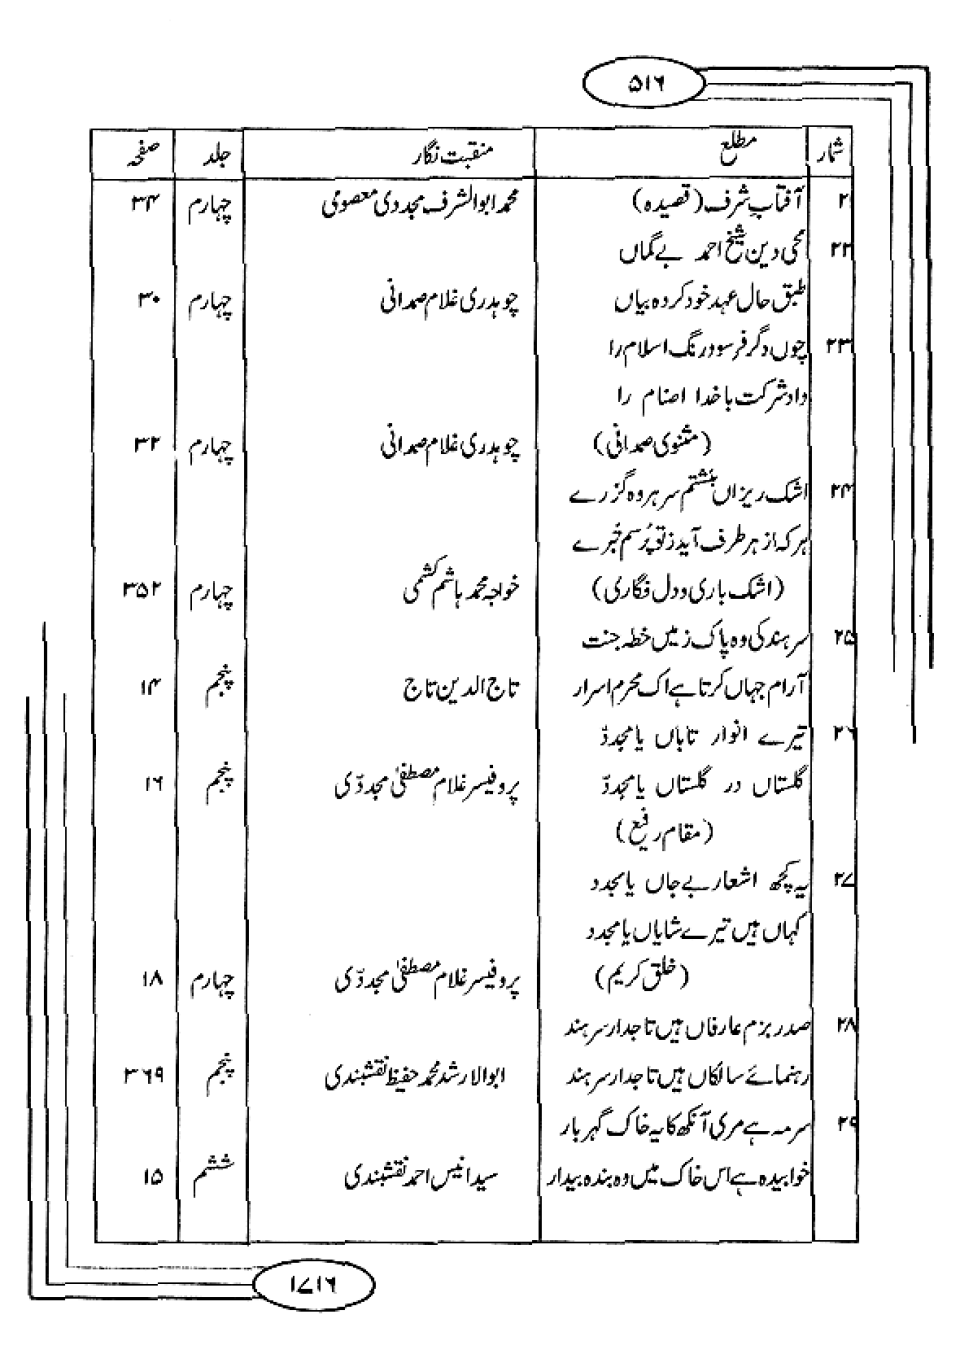 ۵۱۶
شمار مطلع منقبت نگار جلد صفحہ
۲ آفتابِ شرف (قصیدہ) محمد ابوالشرف مجددی معصومی چہارم ۳۴
۲۲ محی دین شیخ احمد بے گماں
طبق حال عہد خود کردہ بیاں چوہدری غلام صمدانی چہارم ۳۰
۲۳ چوں دگر فرسود رنگ اسلام را
داد شرکت با خدا اصنام را
(مثنوی صمدانی) چوہدری غلام صمدانی چہارم ۳۲
۲۴ اشک ریزاں بنشستم سر ہر وہ گزرے
ہر کہ از ہر طرف آید ز تو پُرسم خبرے
(اشک باری و دل فگاری) خواجہ محمد ہاشم کشمی چہارم ۳۵۲
۲۵ سرہند کی وہ پاک زمیں خطہ جنت
آرام جہاں کرتا ہے اک محرم اسرار تاج الدین تاج پنجم ۱۴
۲۶ تیرے انوار تاباں یا مجددّ
گلستاں در گلستاں یا مجددّ پروفیسر غلام مصطفیٰ مجددّی پنجم ۱۶
(مقام رفیع)
۲۷ یہ کچھ اشعار بے جاں یا مجدد
کہاں ہیں تیرے شایاں یا مجدد
(خلق کریم) پروفیسر غلام مصطفیٰ مجددّی چہارم ۱۸
۲۸ صدر بزم عارفاں ہیں تاجدار سرہند
رہنمائے سالکاں ہیں تاجدار سرہند ابوالارشد محمد حفیظ نقشبندی پنجم ۳۶۹
۲۹ سرمہ ہے مری آنکھ کا یہ خاک گہر بار
خوابیدہ ہے اس خاک میں وہ بندہ بیدار سید انیس احمد نقشبندی ششم ۱۵
۱۷۱۶